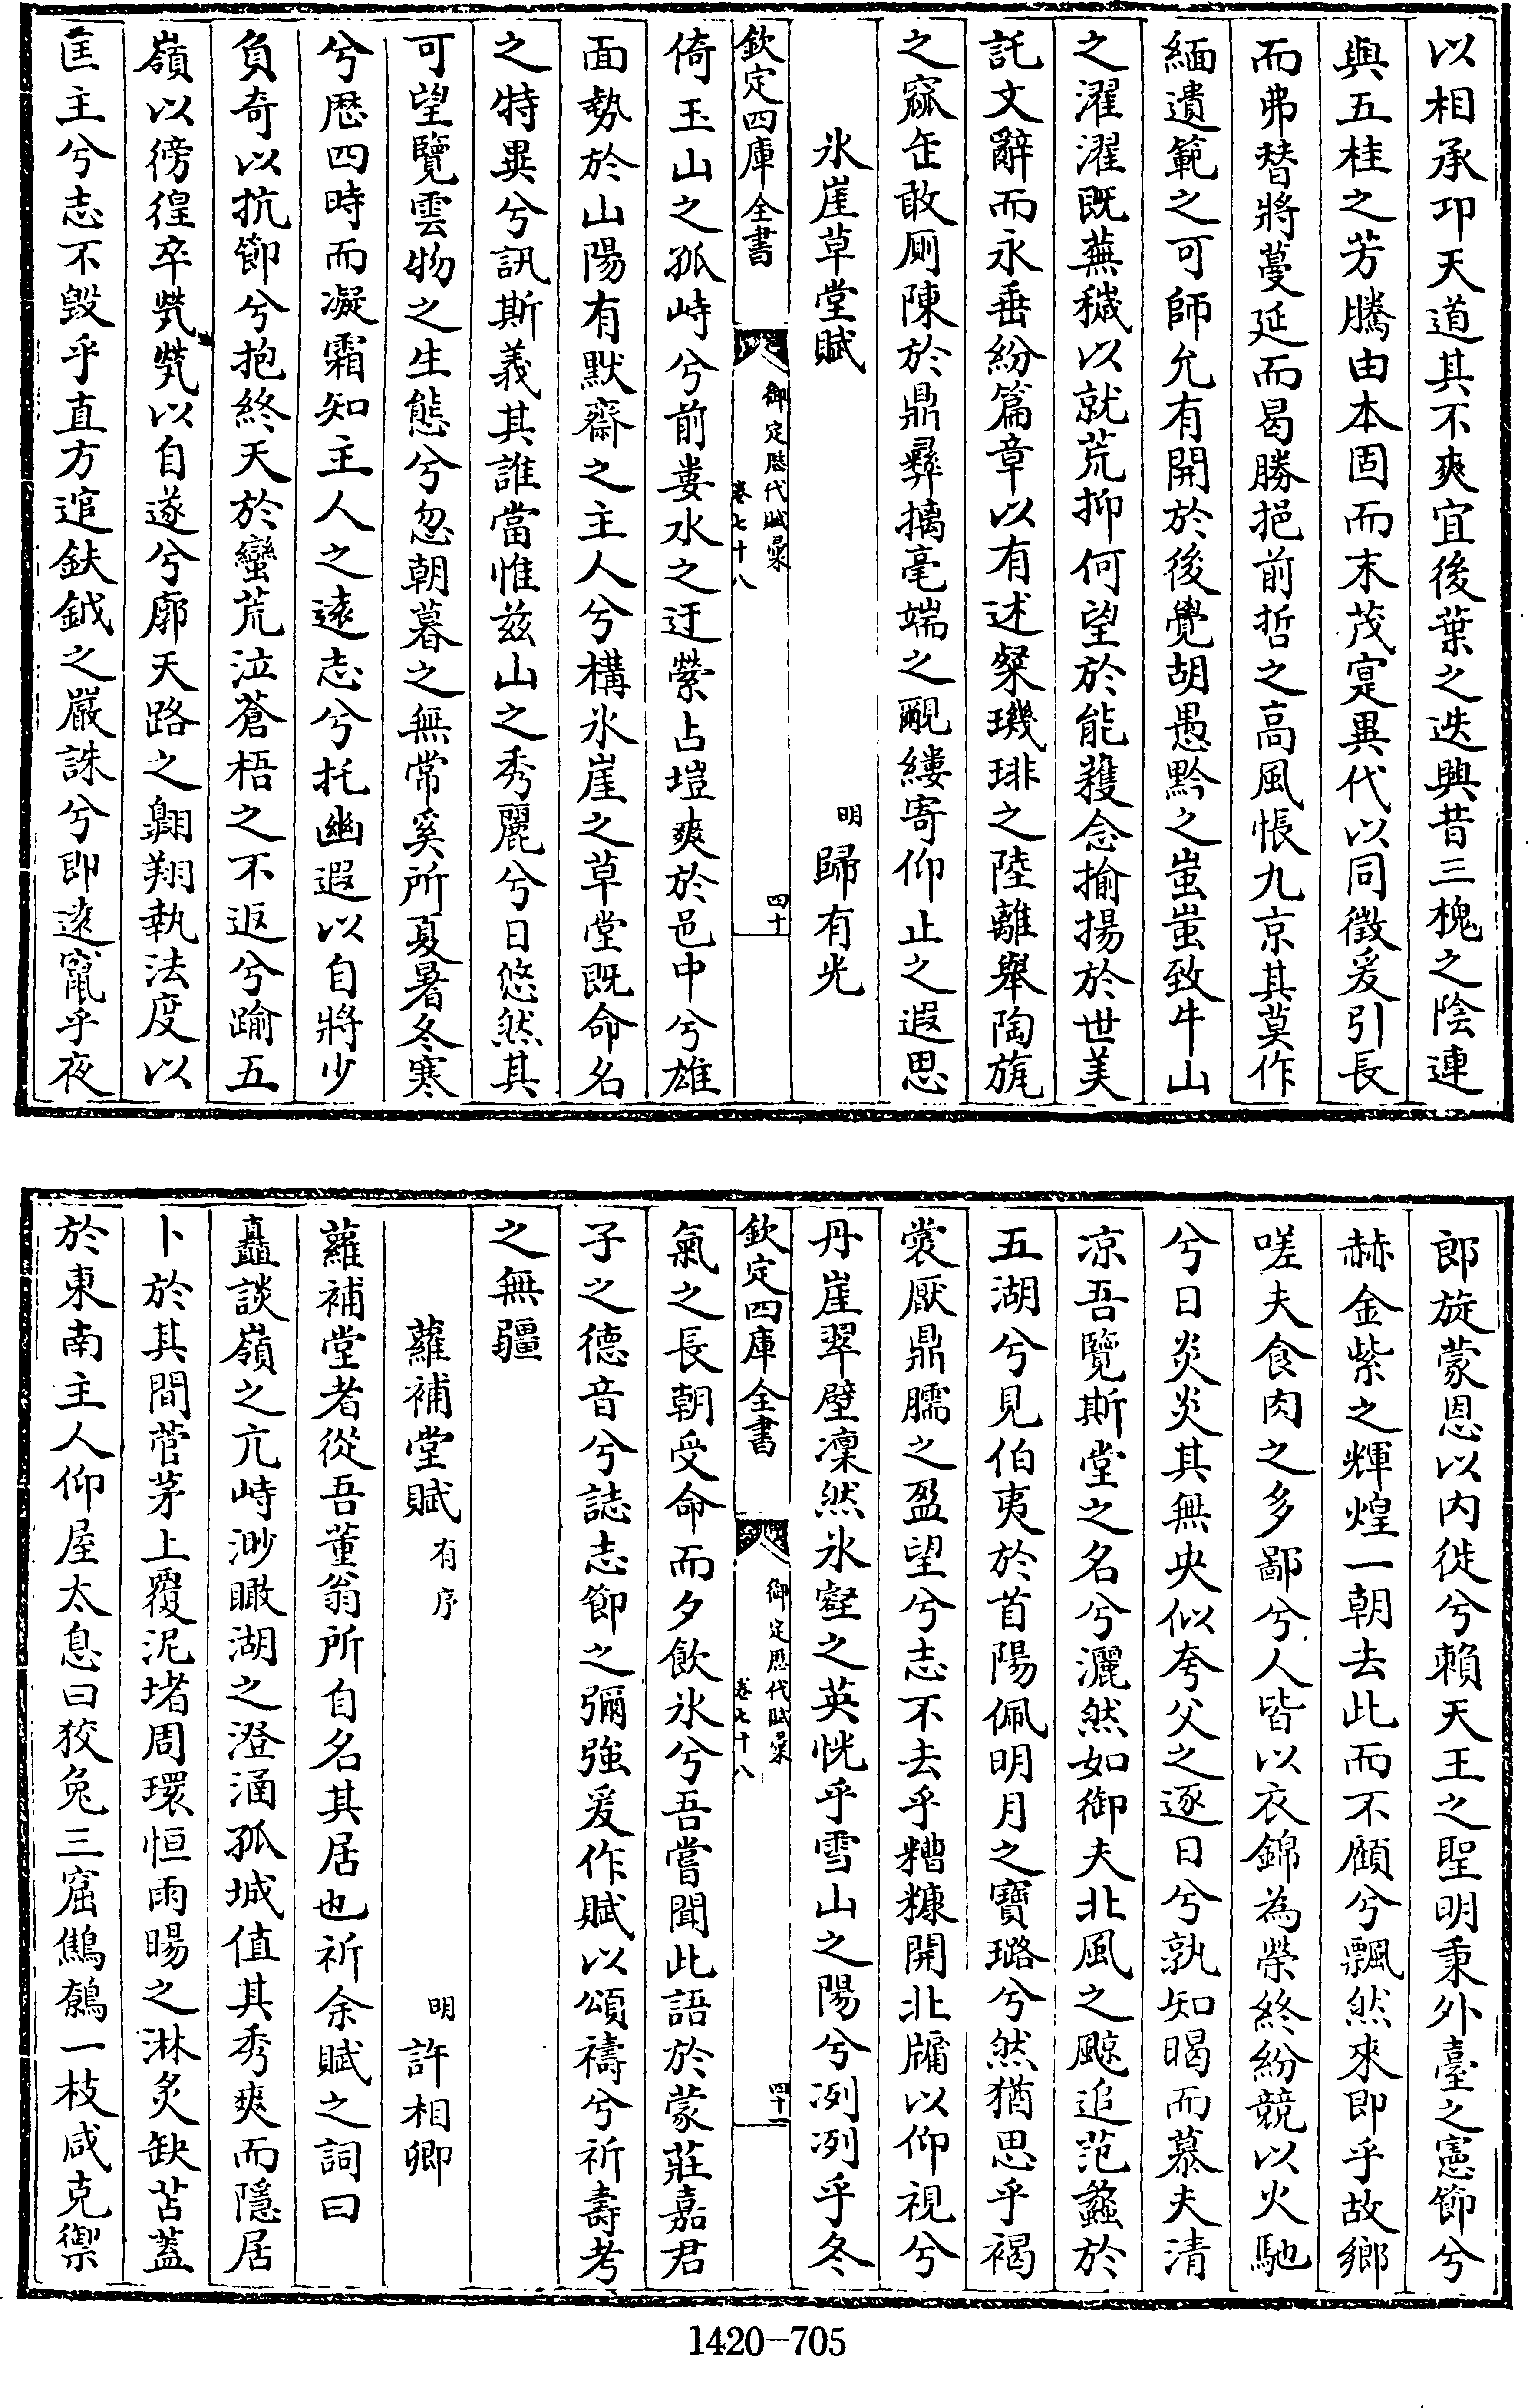 以相承卭天道其不爽宜後葉之迭興昔三槐之陰連
與五桂之芳騰由本固而末茂寔異代以同徵爰引長
而弗替將蔓延而曷勝挹前哲之高風悵九京其莫作
緬遺範之可師允有開於後覺胡愚黔之蚩蚩致牛山
之濯濯既蕪穢以就荒抑何望於能穫念揄揚於世美
託文辭而永垂紛篇章以有述粲璣琲之陸離舉陶旊
之窳缶敢厠陳於鼎彝摛毫端之覼縷寄仰止之遐思
氷崖草堂賦
明
歸有光
欽定四庫全書
御定歴代賦彙
卷七十八
四十
倚玉山之孤峙兮前婁水之迂縈占塏爽於邑中兮雄
面勢於山陽有默齋之主人兮構氷崖之草堂既命名
之特異兮訊斯義其誰當惟兹山之秀麗兮日悠然其
可望覽雲物之生態兮忽朝暮之無常奚所夏暑冬寒
兮歴四時而凝霜知主人之遠志兮托幽遐以自將少
負奇以抗節兮抱終天於蠻荒泣蒼梧之不返兮踰五
嶺以徬徨卒煢煢以自遂兮廓天路之翺翔執法度以
匡主兮志不毁乎直方逭鈇鉞之嚴誅兮即遠竄乎夜
郎旋蒙恩以内徙兮賴天王之聖明秉外臺之憲節兮
赫金紫之輝煌一朝去此而不顧兮飄然來即乎故鄉
嗟夫食肉之多鄙兮人皆以衣錦為榮終紛競以火馳
兮日炎炎其無央似夸父之逐日兮孰知暍而慕夫清
凉吾覽斯堂之名兮灑然如御夫北風之颷追范蠡於
五湖兮見伯夷於首陽佩明月之寶璐兮然猶思乎褐
裳厭鼎臑之盈望兮志不去乎糟糠開北牖以仰視兮
丹崖翠壁凜然氷壑之英恍乎雪山之陽兮冽冽乎冬
欽定四庫全書
御定歴代賦彙
卷七十八
四十一
氣之長朝受命而夕飲氷兮吾嘗聞此語於蒙莊嘉君
子之德音兮誌志節之彌強爰作賦以頌禱兮祈壽考
之無疆
蘿補堂賦
有序
明
許相卿
蘿補堂者從吾董翁所自名其居也祈余賦之詞曰
矗談嶺之亢峙渺瞰湖之澄涵孤城值其秀爽而隱居
卜於其間菅茅上覆泥堵周環恒雨暘之淋炙缺苫蓋
於東南主人仰屋太息曰狡兔三窟鷦鷯一枝咸克禦
1420-705